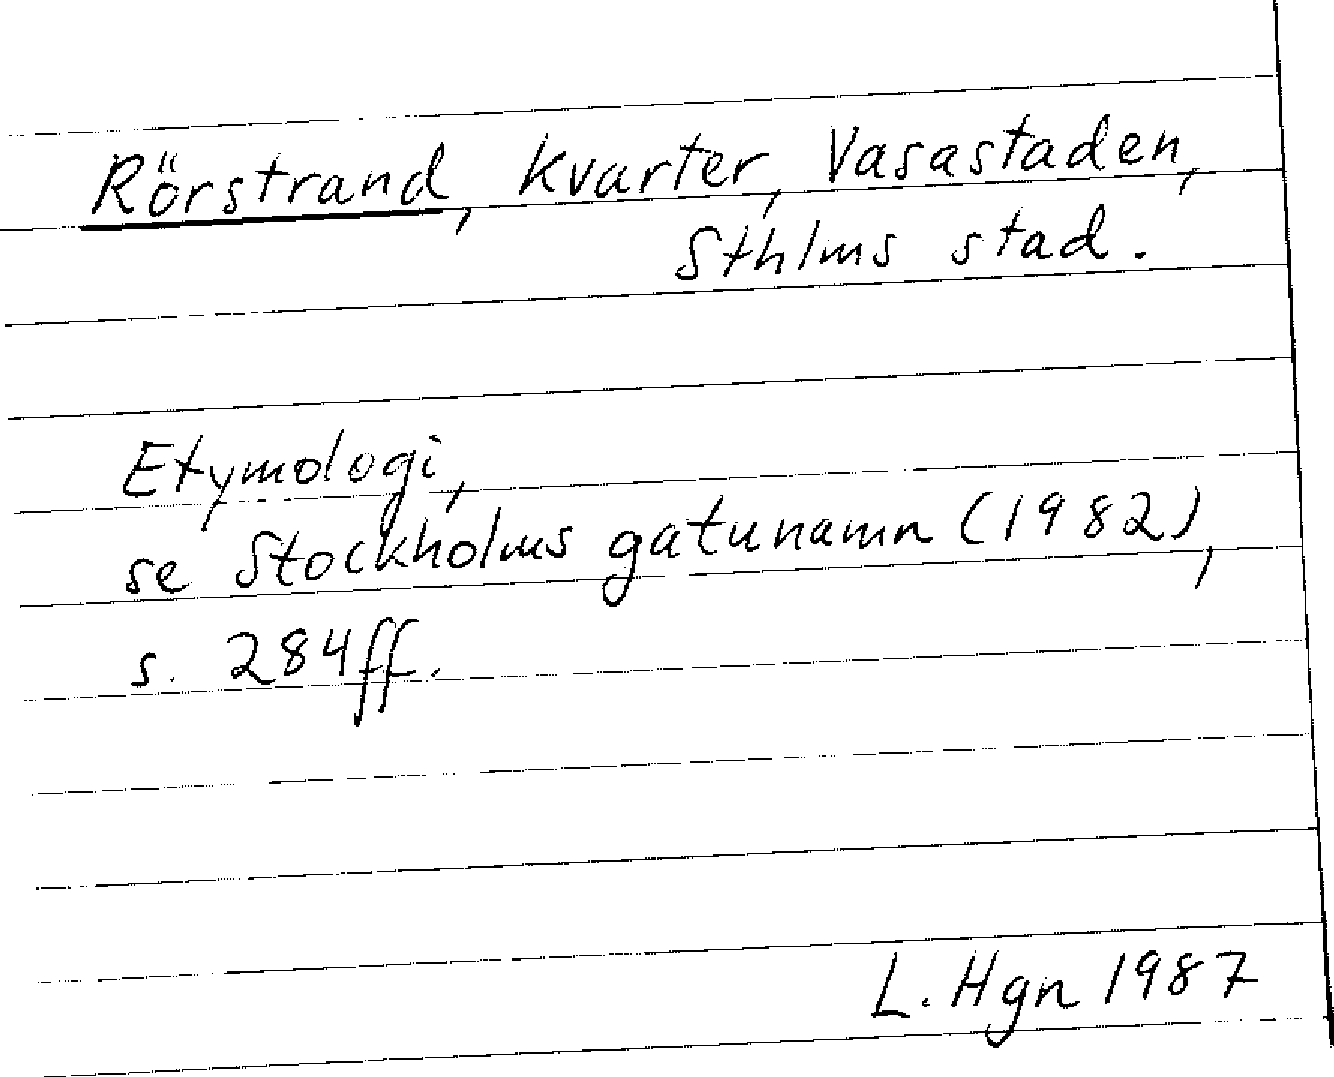 Rörstrand, kvarter, Vasastaden,
Sthlms stad.
Etymologi,
se Stockholms gatunamn (1982),
s. 284ff.
L. Hgn 1987